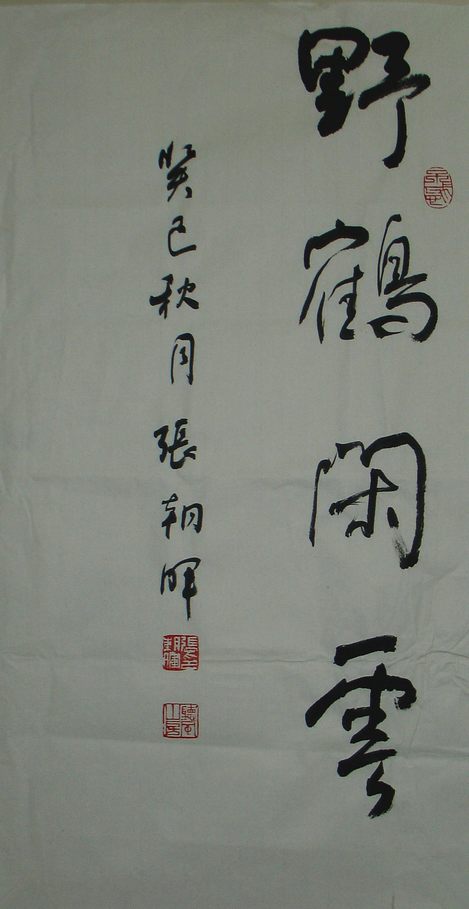 野鶴閑雲
癸巳秋月張朝暉